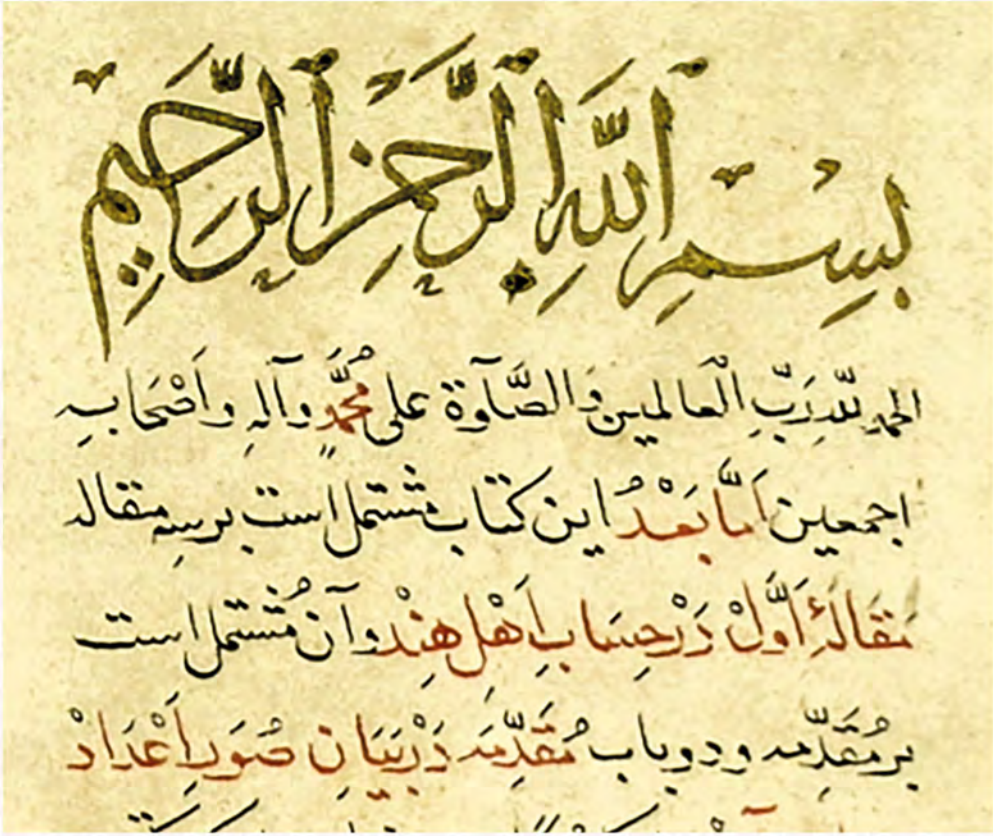 بِسْمِ اللّٰهِ الرَّحْمٰنِ الرَّحِيمِ
الحمد لله رَبِّ الْعالمين وَالصَّلٰوة على مُحَمَّدٍ وآلهِ واَصْحابه
اجمعين اَمّا بَعْدُ این کتاب مشتمل است بر سه مقاله
مقالهٔ اَوَّلْ دَرْ حِسَابِ اَهْلِ هِنْد وآن مُشتمل است
بر مُقَدِّمه و دو باب مُقَدِّمَه دَرْ بَیَانِ صُوَرِ اَعْدَادْ